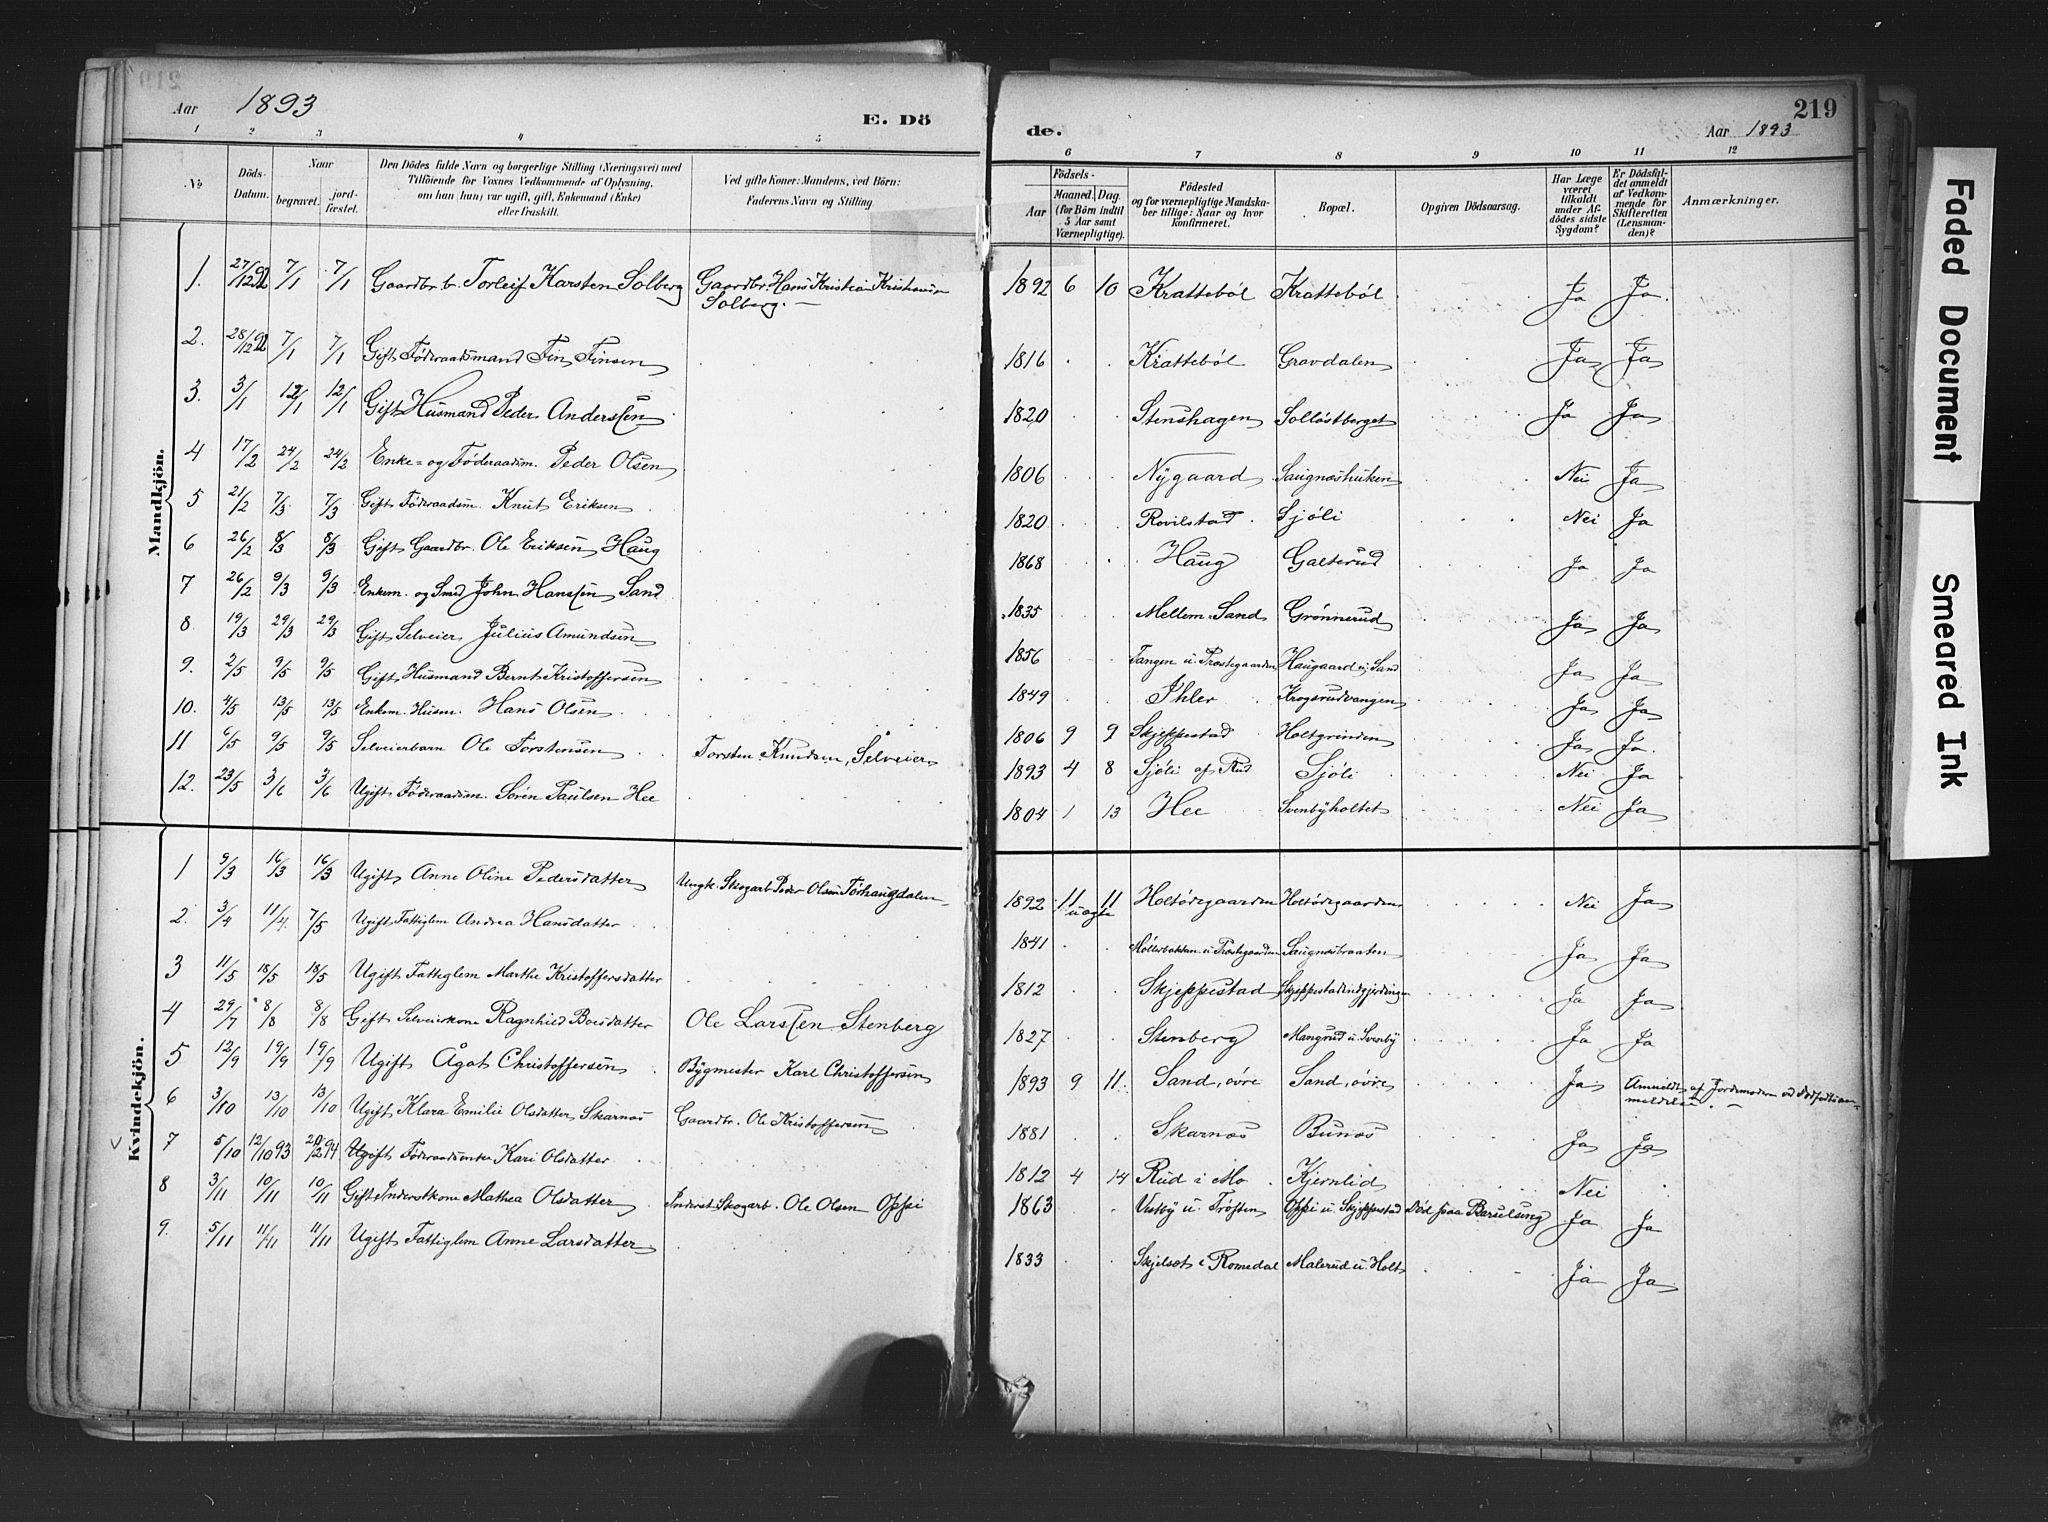 Aar 1893
E. Dö
1 2 3 4 5
No
Döds-Datum.
Naar
begravet.
jord-fæstet.
Den Dödes fulde Navn og borgerlige Stilling (Næringsvei) med
Tilföiende for Voxnes Vedkommende af Oplysning,
om han (hun) var ugift, gift, Enkemand (Enke)
eller fraskilt.
Ved gifte Koner: Mandens, ved Börn:
Faderens Navn og Stilling
Mandkjön.
1. 27/12 92 7/1 7/1 Gaardbr. b. Torleif Karsten Solberg Gaardbr. Hans Kristian Kristiansen
Solberg.
2. 28/12 92 7/1 7/1 Gift Føderaadsmand Fin Finsen
3. 3/1 12/1 12/1 Gift Husmand Peder Anderssen
4 17/2 24/2 24/2 Enke- og Føderaadsm. Peder Olsen
5 21/2 7/3 7/3 Gift Føderaadsm. Knut Eriksen
6 26/2 8/3 8/3 Gift Gaardbr. Ole Eriksen Haug
7 26/2 9/3 9/3 Enkem. og Smed John Hanssen Sand
8 19/3 29/3 29/3 Gift Selveier Julius Amundsen
9. 2/5 9/5 9/5 Gift Husmand Bernt Kristoffersen
10. 4/5 13/5 13/5 Enkem. Husm. Hans Olsen
11 6/5 9/5 9/5 Selveierbarn Ole Torstensen Torsten Knudsen, Selveier
12. 23/5 3/6 3/6 Ugift Føderaadsm. Søren Paulsen Hee
Kvindekjön.
1 9/3 16/3 16/3 Ugift Anne Oline Pedersdatter Ungk. Skogarb. Peder Olsen Torhaugdalen
2. 3/4 11/4 7/5 Ugift Fattiglem Andrea Hansdatter
3 11/5 18/5 18/5 Ugift Fattiglem Marthe Kristoffersdatter
4 29/7 8/8 8/8 Gift Selveierkone Ragnhild Boesdatter Ole Larssen Stenberg
5 12/9 19/9 19/9 Ugift Ågot Christoffersen Bygmester Karl Christoffersen
6 3/10 13/10 13/10 Ugift Klara Emilie Olsdatter Skarnæs Gaardbr. Ole Kristoffersen
7 5/10 12/10 93 20/2 94 Ugift Føderaadsenke Kari Olsdatter
8 3/11 10/11 10/11 Gift Inderstkone Mathea Olsdatter Inderst Skogarb. Ole Olsen Oppi
9. 5/11 11/11 11/11 Ugift Fattiglem Anne Larsdatter
219
de.
Aar 1893
6 7 8 9 10 11 12
Födsels-
Aar
Maaned. Dag.
(for Börn indtil
5 Aar samt
Værnepligtige).
Födested
og for værnepligtige Mandska-
ber tillige: Naar og hvor
konfirmeret.
Bopæl.
Opgiven Dödsaarsag.
Har Læge
været
tilkaldt
under Af-
dödes sidste
Sygdom?
Er Dödsfal-
det anmeldt
af Vedkom-
mende for
Skifteretten
(Lensman-
den)?
Anmærkninger.
1892 6 10 Krattebøl Krattebøl Ja Ja
1816 Krattebøl Gravdalen Ja Ja
1820 Stenshagen Solløstberget Ja Ja
1806 Nygaard Saugnæshuken Nei Ja
1820 Rovilstad Sjøli Nei Ja
1868 Haug Galterud Ja Ja
1835 Mellem-Sand Grønnerud Ja Ja
1856 Tangen u. Præstegaarden Haugaard u. Sand Ja Ja
1849 Ihler Krogsrudvangen Ja Ja
1806 9 9 Skjeppestad Holtgrinden Ja Ja.
1893 4 8 Sjøli af Rud Sjøli Nei Ja
1804 1 13 Hee Svenbyholtet Nei Ja
1892 11 11 Holtødegaarden Holtødegaarden Nei Ja
uægte
1841 Møllerbakken u. Præstegaarden Saugnæsbraaten Ja Ja
1812 Skjeppestad Skjeppestadindgjerdingen Ja Ja
1827 Stenberg Mangrud u. Svenby Ja Ja
1893 9 11. Sand, øvre Sand, øvre Ja Anmeldt af Jordemoderen ved Dødfødtsan-
meldelse.
1881 Skarnæs Bunæs Ja Ja
1812 4 14 Rud i Mo Kjernlid Nei
1863 Vestby u. Trøften Oppi u. Skjeppestad Død paa Barselseng Ja Ja
1833 Skjelset i Romedal Malerud u. Holt Ja Ja
Faded Document
Smeared Ink